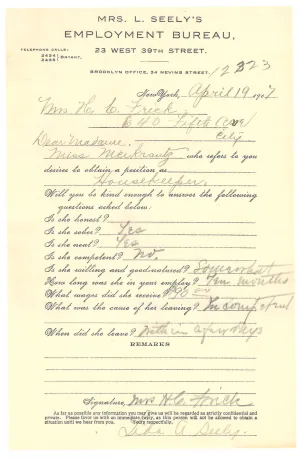 MRS. L. SEELY'S
EMPLOYMENT BUREAU,
23 WEST 39TH STREET.
TELEPHONE CALLS:
BRYANT.
BROOKLYN OFFICE, 34 NEVINS STREET.
12323
New York, April 19 1907
Mrs H. C. Frick
640 Fifth Ave
City
Dear Madame.
Miss who refers to you
desires to obtain a position as
Housekeeper.
Will you be kind enough to answer the following
questions asked below:
Is she honest?
Is she sober? Yes
Is she neat? Yes
Is she competent? No.
Is she willing and good-natured? Somewhat
How long was she in your employ? Ten months
What wages did she receive? $90.00
What was the cause of her leaving? Incompetent
When did she leave? Within a few days
REMARKS
Signature, Mrs H. C. Frick
As far as possible any information you may give us will be regarded as strictly confidential and
private. Please favor us with an immediate reply, as this person will not be allowed to obtain a
situation until we hear from you.
Very respectfully,
Lida A Seely.